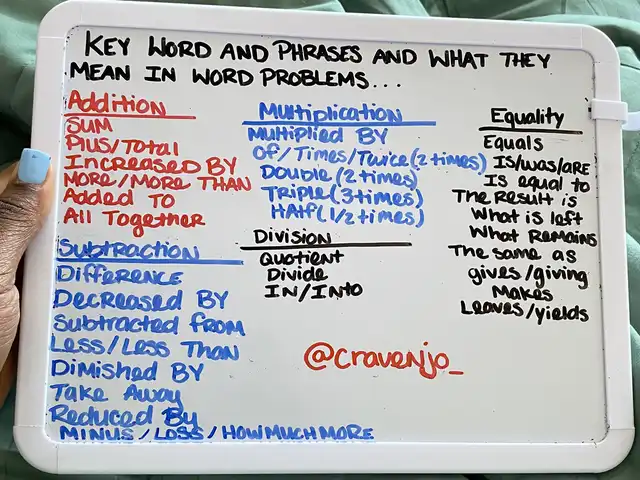 KEY WORD AND PHRASES AND WHAT THEY
MEAN IN WORD PROBLEMS...
Addition
SUM
Plus/Total
Increased BY
MORE/MORE THAN
Added To
All Together
Subtraction
Difference
Decreased BY
Subtracted from
Less/Less Than
Dimished BY
Take Away
Reduced By
MINUS/LOSS/HOW MUCH MORE
Multiplication
Multiplied BY
Of/Times/Twice(2times)
Double(2times)
Triple(3times)
Half(1/2times)
Division
Quotient
Divide
In/Into
@cravenjo_
Equality
Equals
Is/was/are
Is equal to
The Result is
What is left
What Remains
The same as
gives/giving
Makes
Leaves/yields